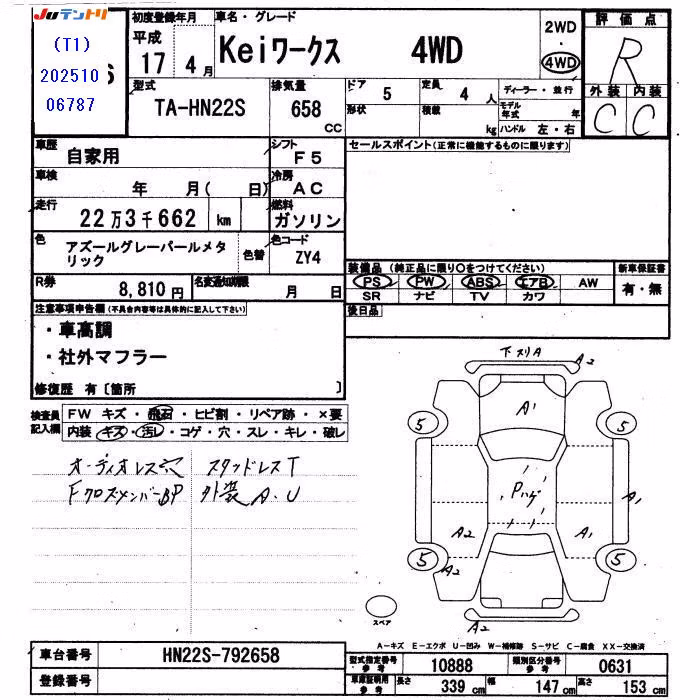 JUテントリ
(T1)
202510
06787
S
初度登録年月
平成
17 4月
車名・グレード
Keiワークス 4WD
2WD
・
4WD
評価点
R
外装 内装
C C
型式
TA-HN22S
排気量
658
CC
ドア 5
定員 4 人
ディーラー・並行
形状
積載 kg
モデル年式 年
ハンドル 左・右
車歴
自家用
シフト
F5
セールスポイント(正常に機能するものに限ります)
車検
年 月( 日)
冷房
AC
走行
22万3千662 km
燃料
ガソリン
色
アズールグレーパールメタ
リック
色替
色コード
ZY4
装備品(純正品に限り○をつけてください)
新車保証書
PS PW ABS エアB AW
有・無
SR ナビ TV カワ
R券
8,810円
名変通知期限
月 日
後日品
注意事項申告欄(不具合内容等は具体的に記入して下さい)
・車高調
・社外マフラー
修復歴 有〔箇所 〕
検査員
記入欄
FW キズ・飛石・ヒビ割・リペア跡・×要
内装 キズ・汚レ・コゲ・穴・スレ・キレ・破レ
オーディオレス穴 スタッドレスT
FクロスメンバーBP 外装A.U
下スリA
A2
A1
5
5
Pハゲ
A1
A2
A1
5
A2
5
A2
スペア
A-キズ E-エクボ U-凹み W-補修跡 S-サビ C-腐食 XX-交換済
車台番号
HN22S-792658
型式指定番号
参考
10888
類別区分番号
参考
0631
登録番号
車庫証明用
参考
長さ 339 cm
幅 147 cm
高さ 153 cm